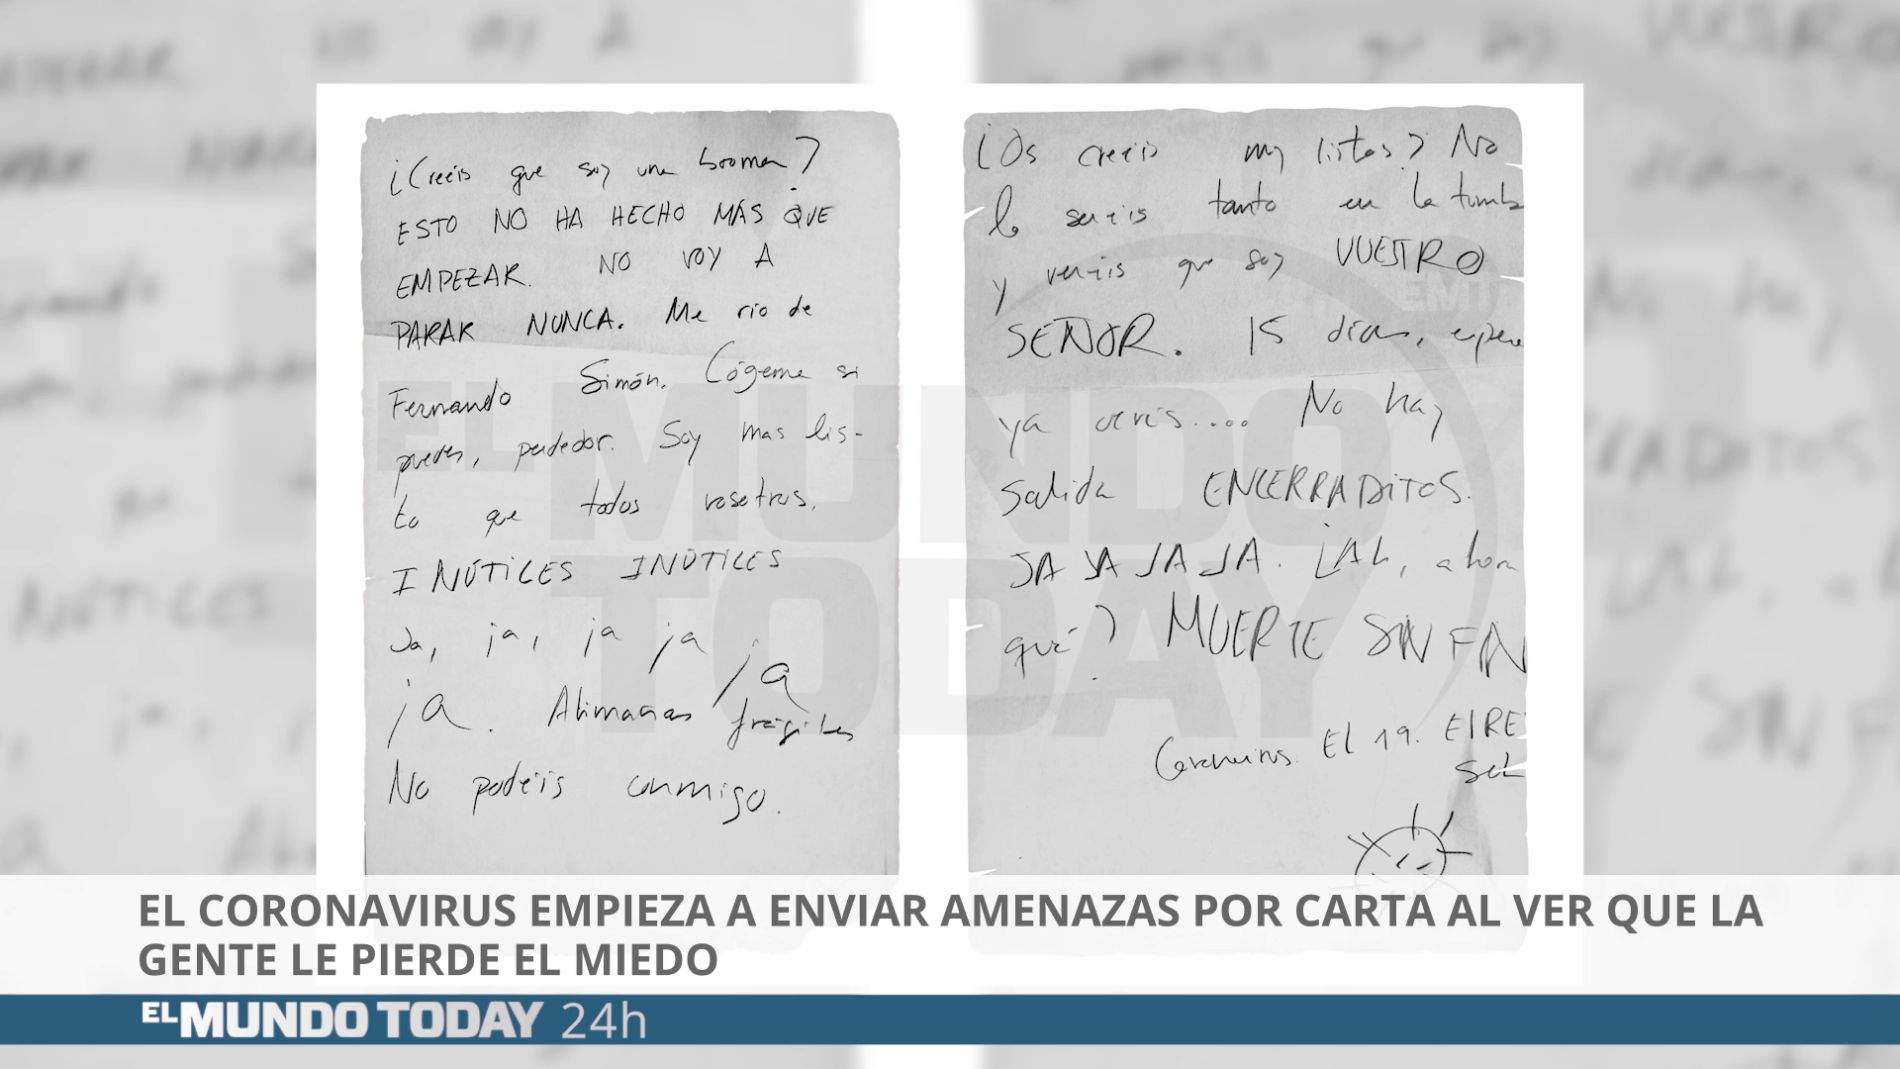 ¿Creéis que soy una broma?
ESTO NO HA HECHO MÁS QUE
EMPEZAR. NO VOY A
PARAR NUNCA. Me río de
Fernando Simón. Cógeme si
puedes, perdedor. Soy mas lis-
to que todos vosotros.
INÚTILES INÚTILES
Ja, ja, ja ja ja
ja. Alimañas frágiles
No podéis conmigo.
¿Os creéis muy listos? No
lo seréis tanto en la tumba
y veréis que soy VUESTRO
SEÑOR. 15 días, espera
ya veréis.... No hay
salida ENCERRADITOS.
JA JA JA JA. ¿Ah, ahora
qué? MUERTE SIN FIN
Coronavirus. El 19. EIRE
EL MUNDO TODAY
EL CORONAVIRUS EMPIEZA A ENVIAR AMENAZAS POR CARTA AL VER QUE LA
GENTE LE PIERDE EL MIEDO
EL MUNDO TODAY 24h